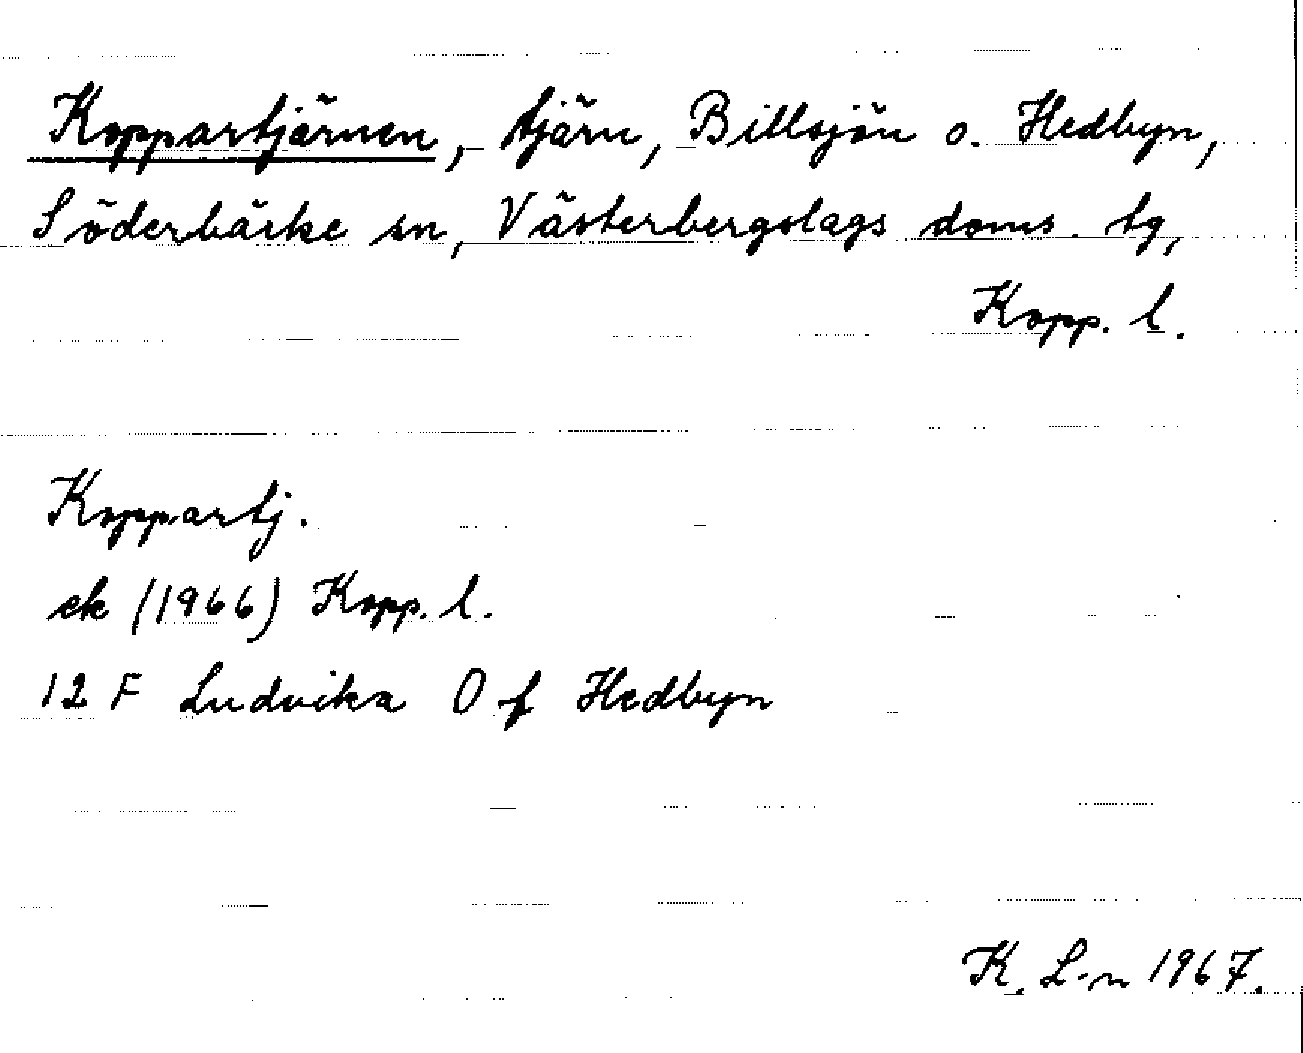 Koppartjärnen, tjärn, Billsjön o. Hedbyn,
Söderbärke sn, Västerbergslags doms. tg,
Kopp. l.
Koppartj.
ek (1966) Kopp. l.
12 F Ludvika O f Hedbyn
K. L-n 1967.